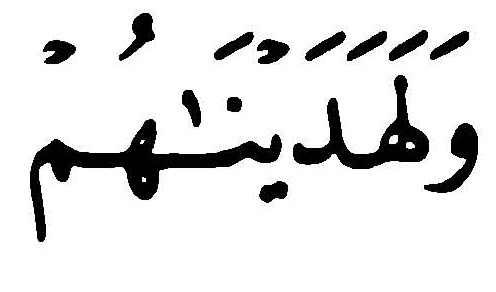 وَلَهَدَيْنَٰهُمْ